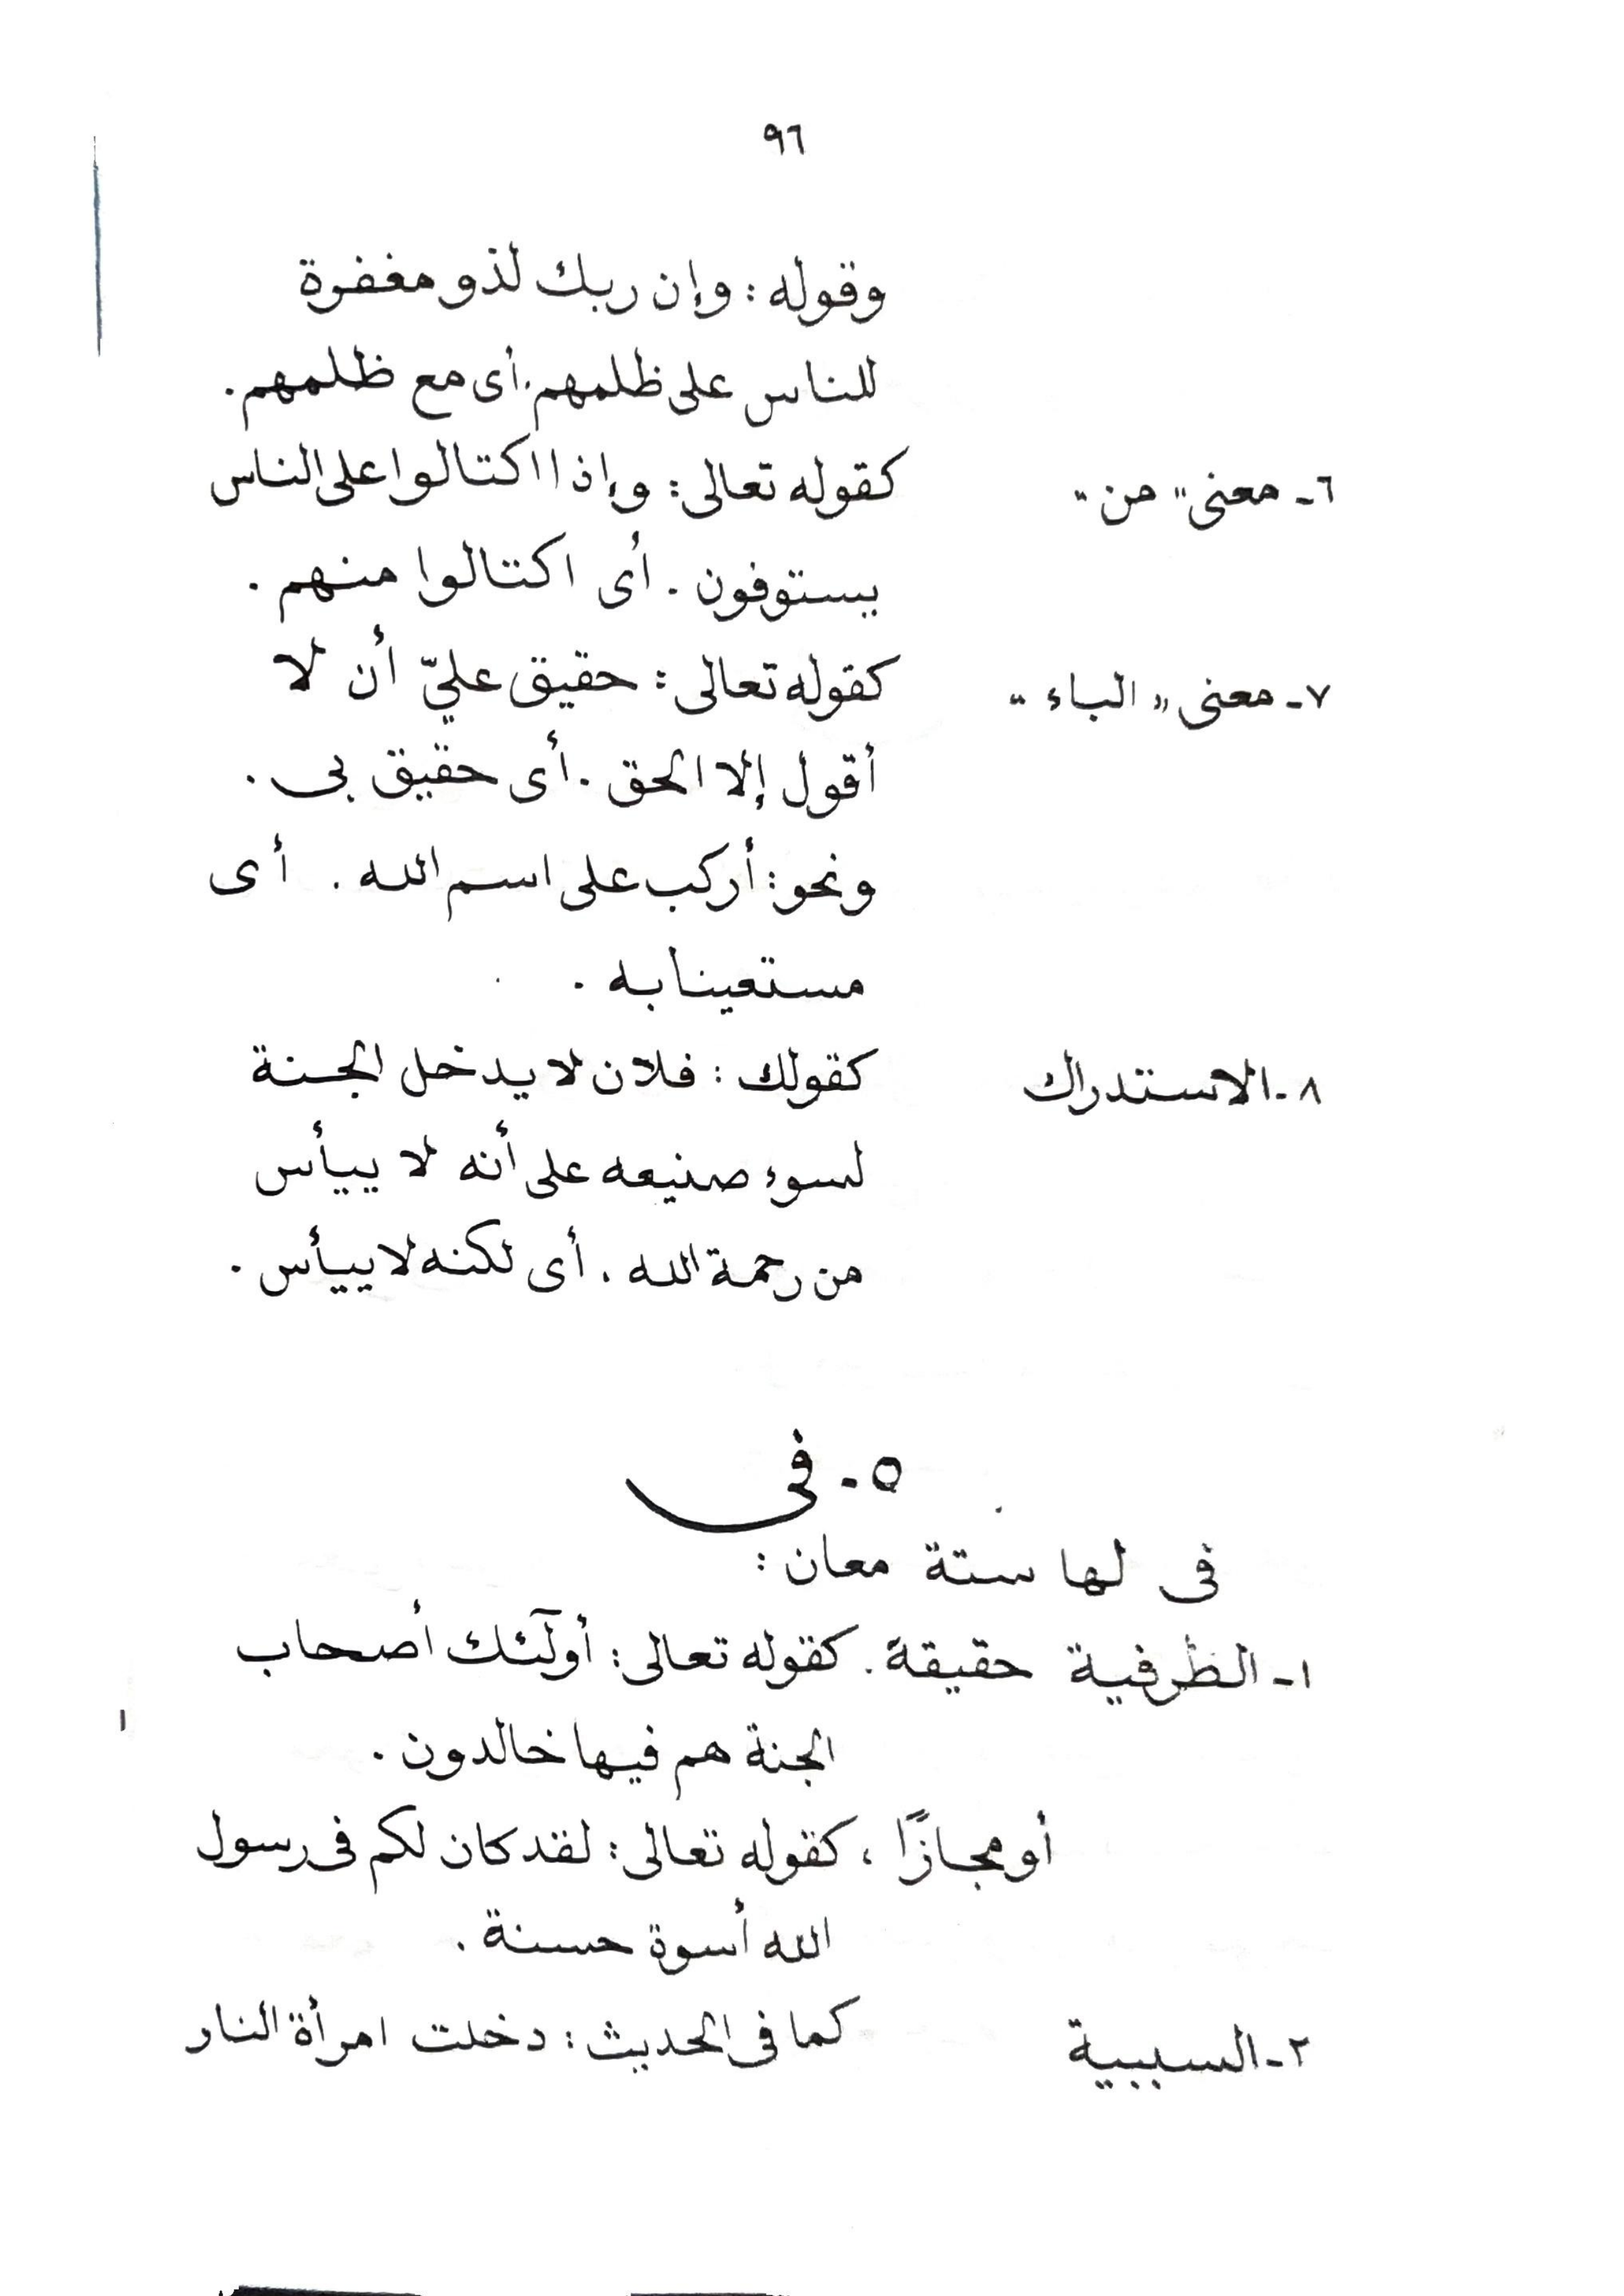 ٩٦
وقوله : وإن ربك لذو مغفرة
للناس على ظلمهم . أى مع ظلمهم .
٦- معنى " من " كقوله تعالى : وإذا اكتالوا على الناس
يستوفون . أى اكتالوا منهم .
٧- معنى " الباء " كقوله تعالى : حقيق عليّ أن لا
أقول إلا الحق . أى حقيق بى .
ونحو : أركب على اسم الله . أى
مستعينا به .
٨- الاستدراك كقولك : فلان لا يدخل الجنة
لسوء صنيعه على أنه لا ييأس
من رحمة الله . أى لكنه لا ييأس .
٥- فى
فى لها ستة معان :
١- الظرفية حقيقة . كقوله تعالى : أولٓئك أصحاب
الجنة هم فيها خالدون .
أو مجازًا ، كقوله تعالى : لقد كان لكم فى رسول
الله أسوة حسنة .
٢- السببية كما فى الحديث : دخلت امرأة النار